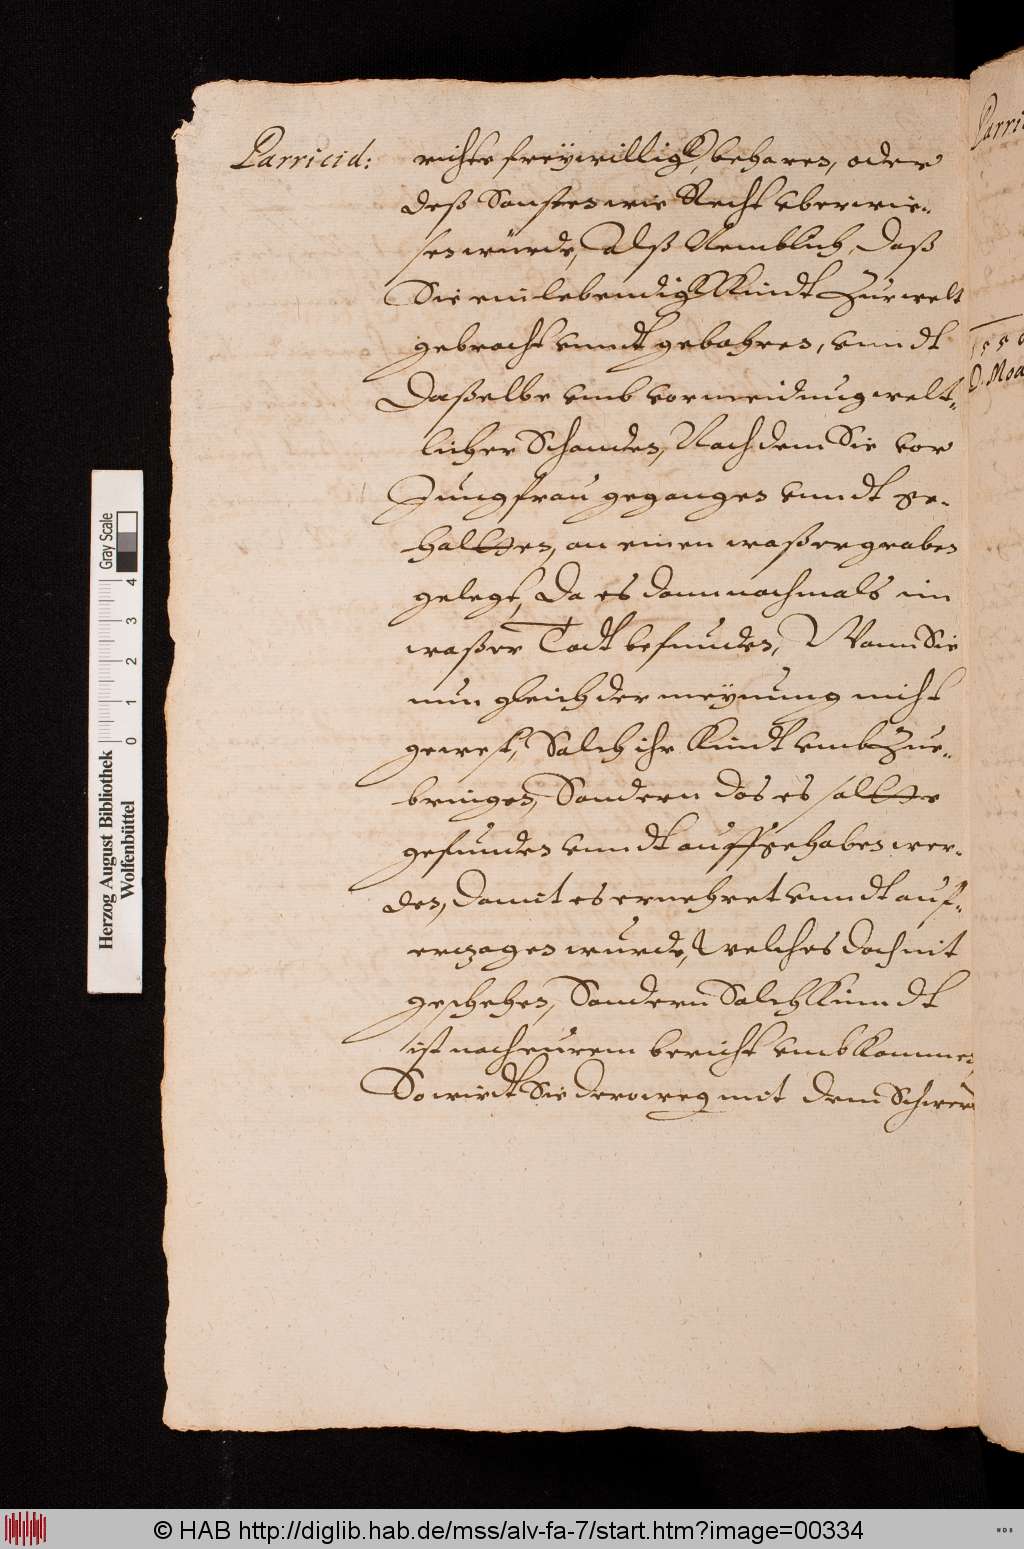 Parricid:
richte freÿwillig, beharen, oder
deß Sonsten wie Recht vberwie-
sen würde, Alß Nemblich, Daß
Sie ein lebendig Kindt Zur welt
gebracht vnndt gebohren, vnndt
Daßelbe vmb vormeidung welt-
licher Schanden, Nachdem Sie vor
Jungfrau gegangen vnndt ge-
haltten, an einen waßergraben
gelegt, Da es dann nochmals im
waßer Todt befunden, Wann Sie
nun gleich der meÿnung nicht
gewest, Solch ihr Kindt vmb Zue-
bringen, Sondern das es soltte
gefunden vnndt auffgehaben wer-
den, damit es ernehret vnndt auf-
erzogen wurde, Welches doch nit
geschehen, Sondern Solch Kinndt
ist nach eurem bericht vmbkommen,
So wirdt Sie deroweg mit dem Schwer
Parri
155
D. Moa
Herzog August Bibliothek
Wolfenbüttel
0 1 2 3 4
Gray Scale
© HAB http://diglib.hab.de/mss/alv-fa-7/start.htm?image=00334